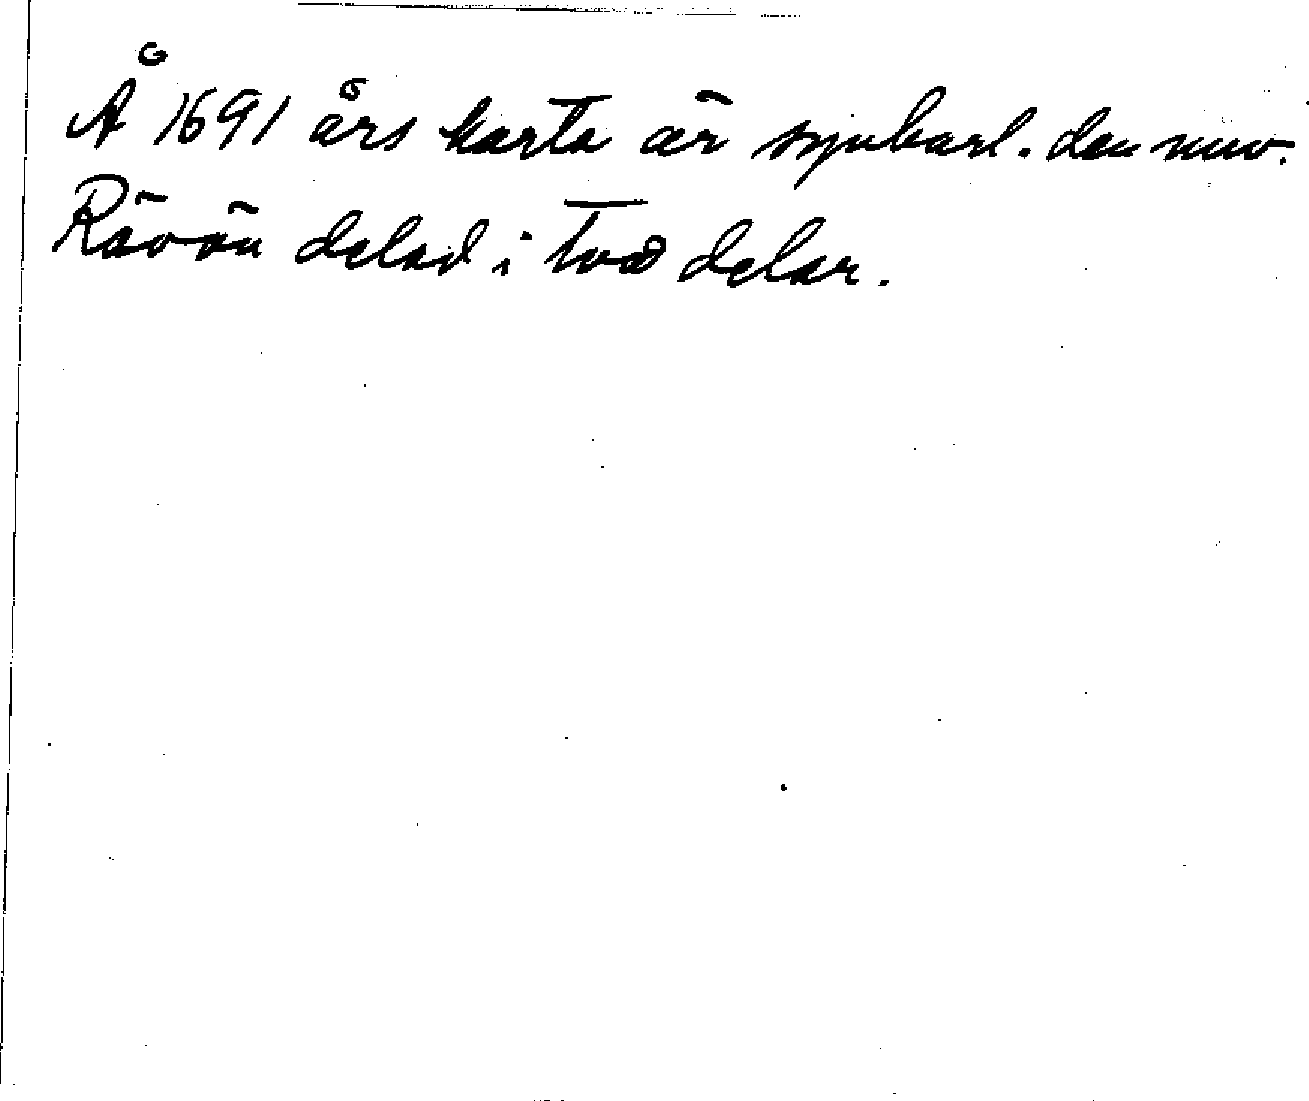 Å 1691 års karta är synbarl. den nuv.
Rävön delad i två delar.